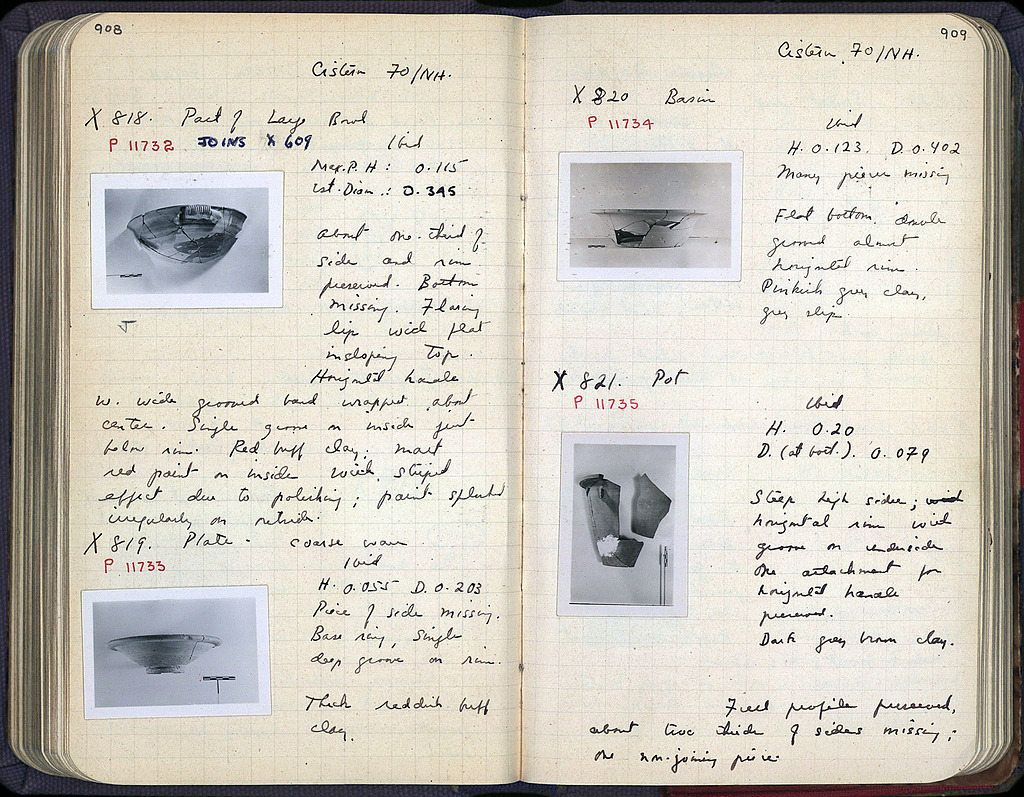 908
Cistern 70/NH.
X 818. Part of Large Bowl
P 11732 JOINS X 609 Ibid
Max. P. H: 0.115
Est. Diam.: 0.345
About one-third of
side and rim
preserved. Bottom
missing. Flaring
lip with flat
insloping top.
Horizontal handle
w. wide grooved band wrapped about
center. Single groove on inside just
below rim. Red buff clay; matt
red paint on inside with striped
effect due to polishing; paint splashed
irregularly on outside.
X 819. Plate - coarse ware
P 11733 Ibid
H. 0.055 D. 0.203
Piece of side missing.
Base ring, single
deep groove on rim.
Thick reddish buff
clay.
909
Cistern 70/NH.
X 820 Basin
P 11734 Ibid
H. 0.123. D. 0.402
Many pieces missing
Flat bottom, double
groove almost
horizontal rim.
Pinkish grey clay,
grey slip.
X 821. Pot
P 11735 Ibid
H. 0.20
D. (at bott.). 0.079
Steep high sides;
horizontal rim with
groove on underside
One attachment for
horizontal handle
preserved.
Dark grey brown clay.
Full profile preserved,
about two thirds of sides missing;
one non-joining piece.